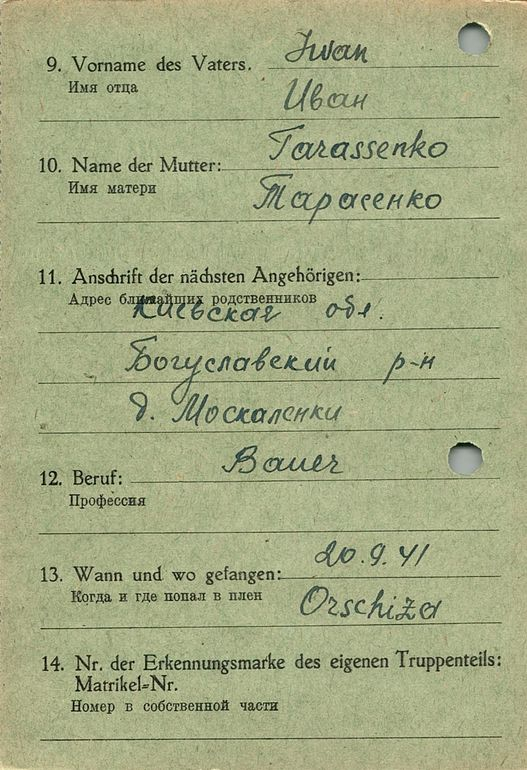 Iwan
9. Vorname des Vaters.
Имя отца
Иван
Tarassenko
10. Name der Mutter:
Имя матери
Тарасенко
11. Anschrift der nächsten Angehörigen:
Адрес ближайших родственников
Киевская обл.
Богуславский р-н
д. Москаленки
Bauer
12. Beruf:
Профессия
20.9.41
13. Wann und wo gefangen:
Когда и где попал в плен
Orschiza
14. Nr. der Erkennungsmarke des eigenen Truppenteils:
Matrikel=Nr.
Номер в собственной части